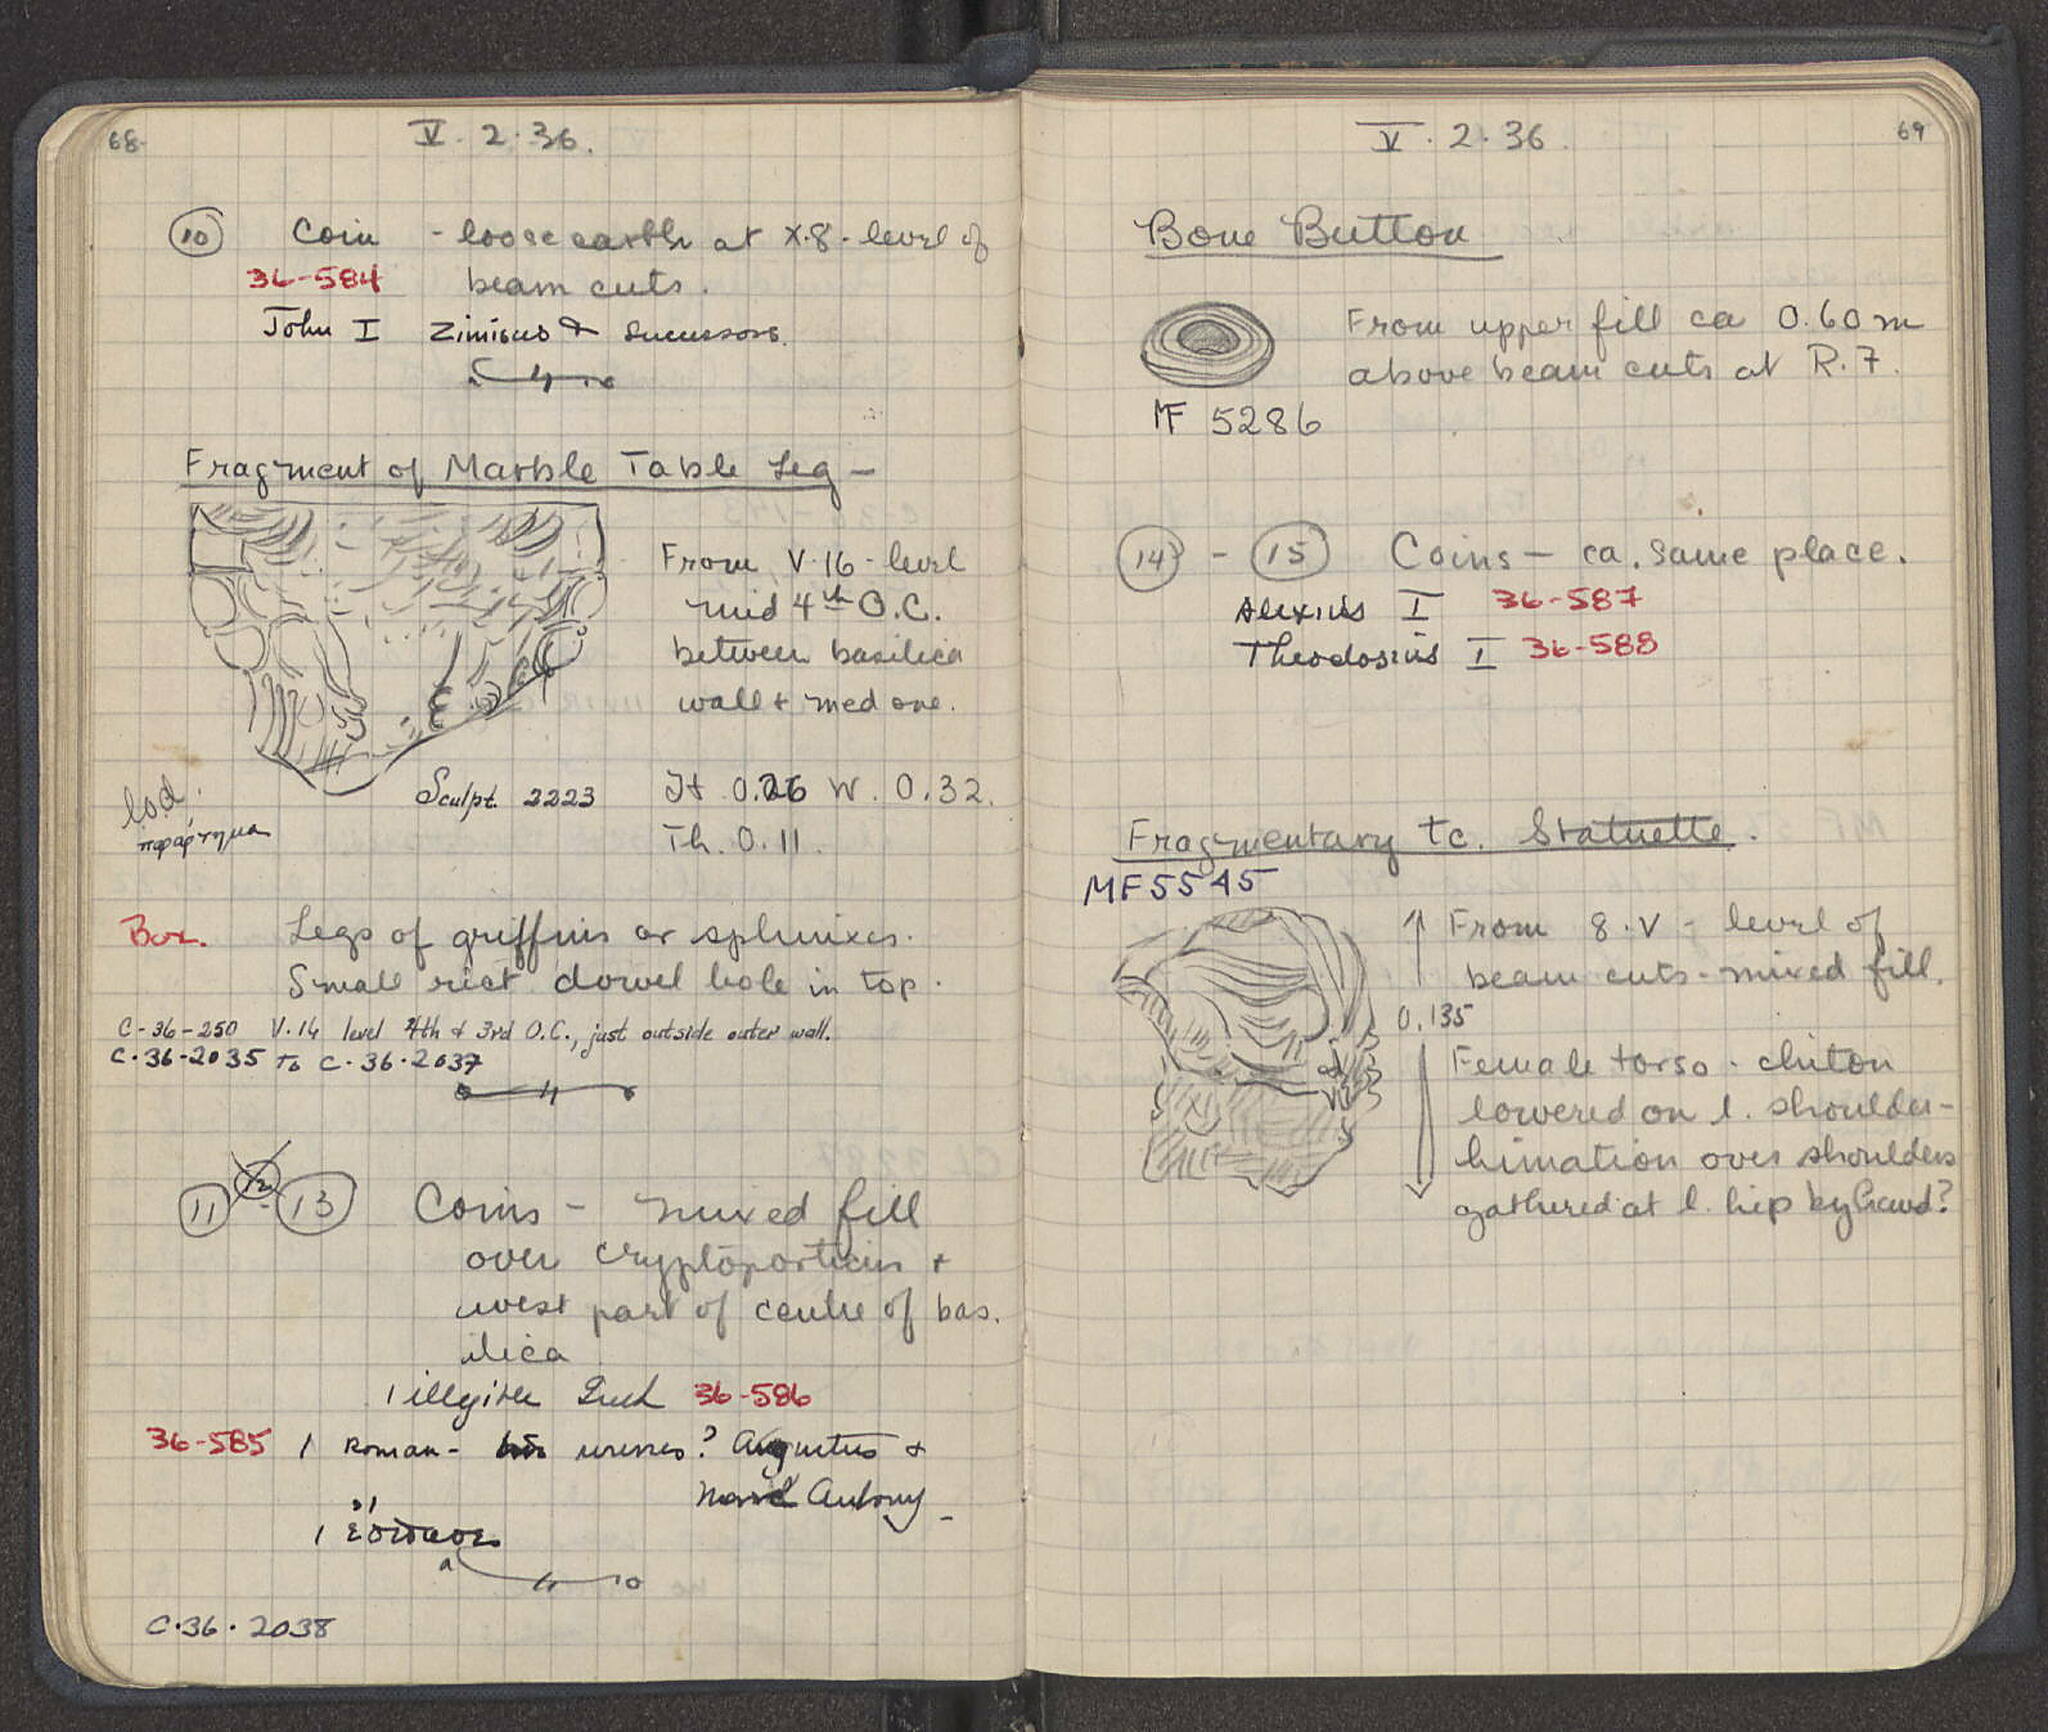 68
V. 2. 36.
10 Coin - loose earth at X.8 - level of
36-584 beam cuts.
John I Zimisces & successors.
Fragment of Marble Table Leg -
From V.16 - level
mid 4th O.C.
between basilica
wall + med one.
Sculpt. 2223
Ht 0.26 W. 0.32.
Th. 0.11.
παράρτημα
Box. Legs of griffins or sphinxes.
Small rect. dowel hole in top.
C-36-250 V.14 level 4th & 3rd O.C., just outside outer wall.
C.36-2035 To C.36.2037
11 12 - 13 Coins - mixed fill
over cryptoporticus +
west part of centre of bas.
ilica
1 illegible 36-586
36-585 1 Roman - ? Augustus &
Antony -
1
C.36.2038
V. 2. 36.
69
Bone Button
From upper fill ca 0.60 m
above beam cuts at R.7.
MF 5286
14 - 15 Coins - ca. same place.
Alexius I 36-587
Theodosius I 36-588
Fragmentary tc. Statuette.
MF5545
From 8.V - level of
beam cuts - mixed fill.
0.135
Female torso - chiton
lowered on l. shoulder -
himation over shoulders
gathered at l. hip by hand?